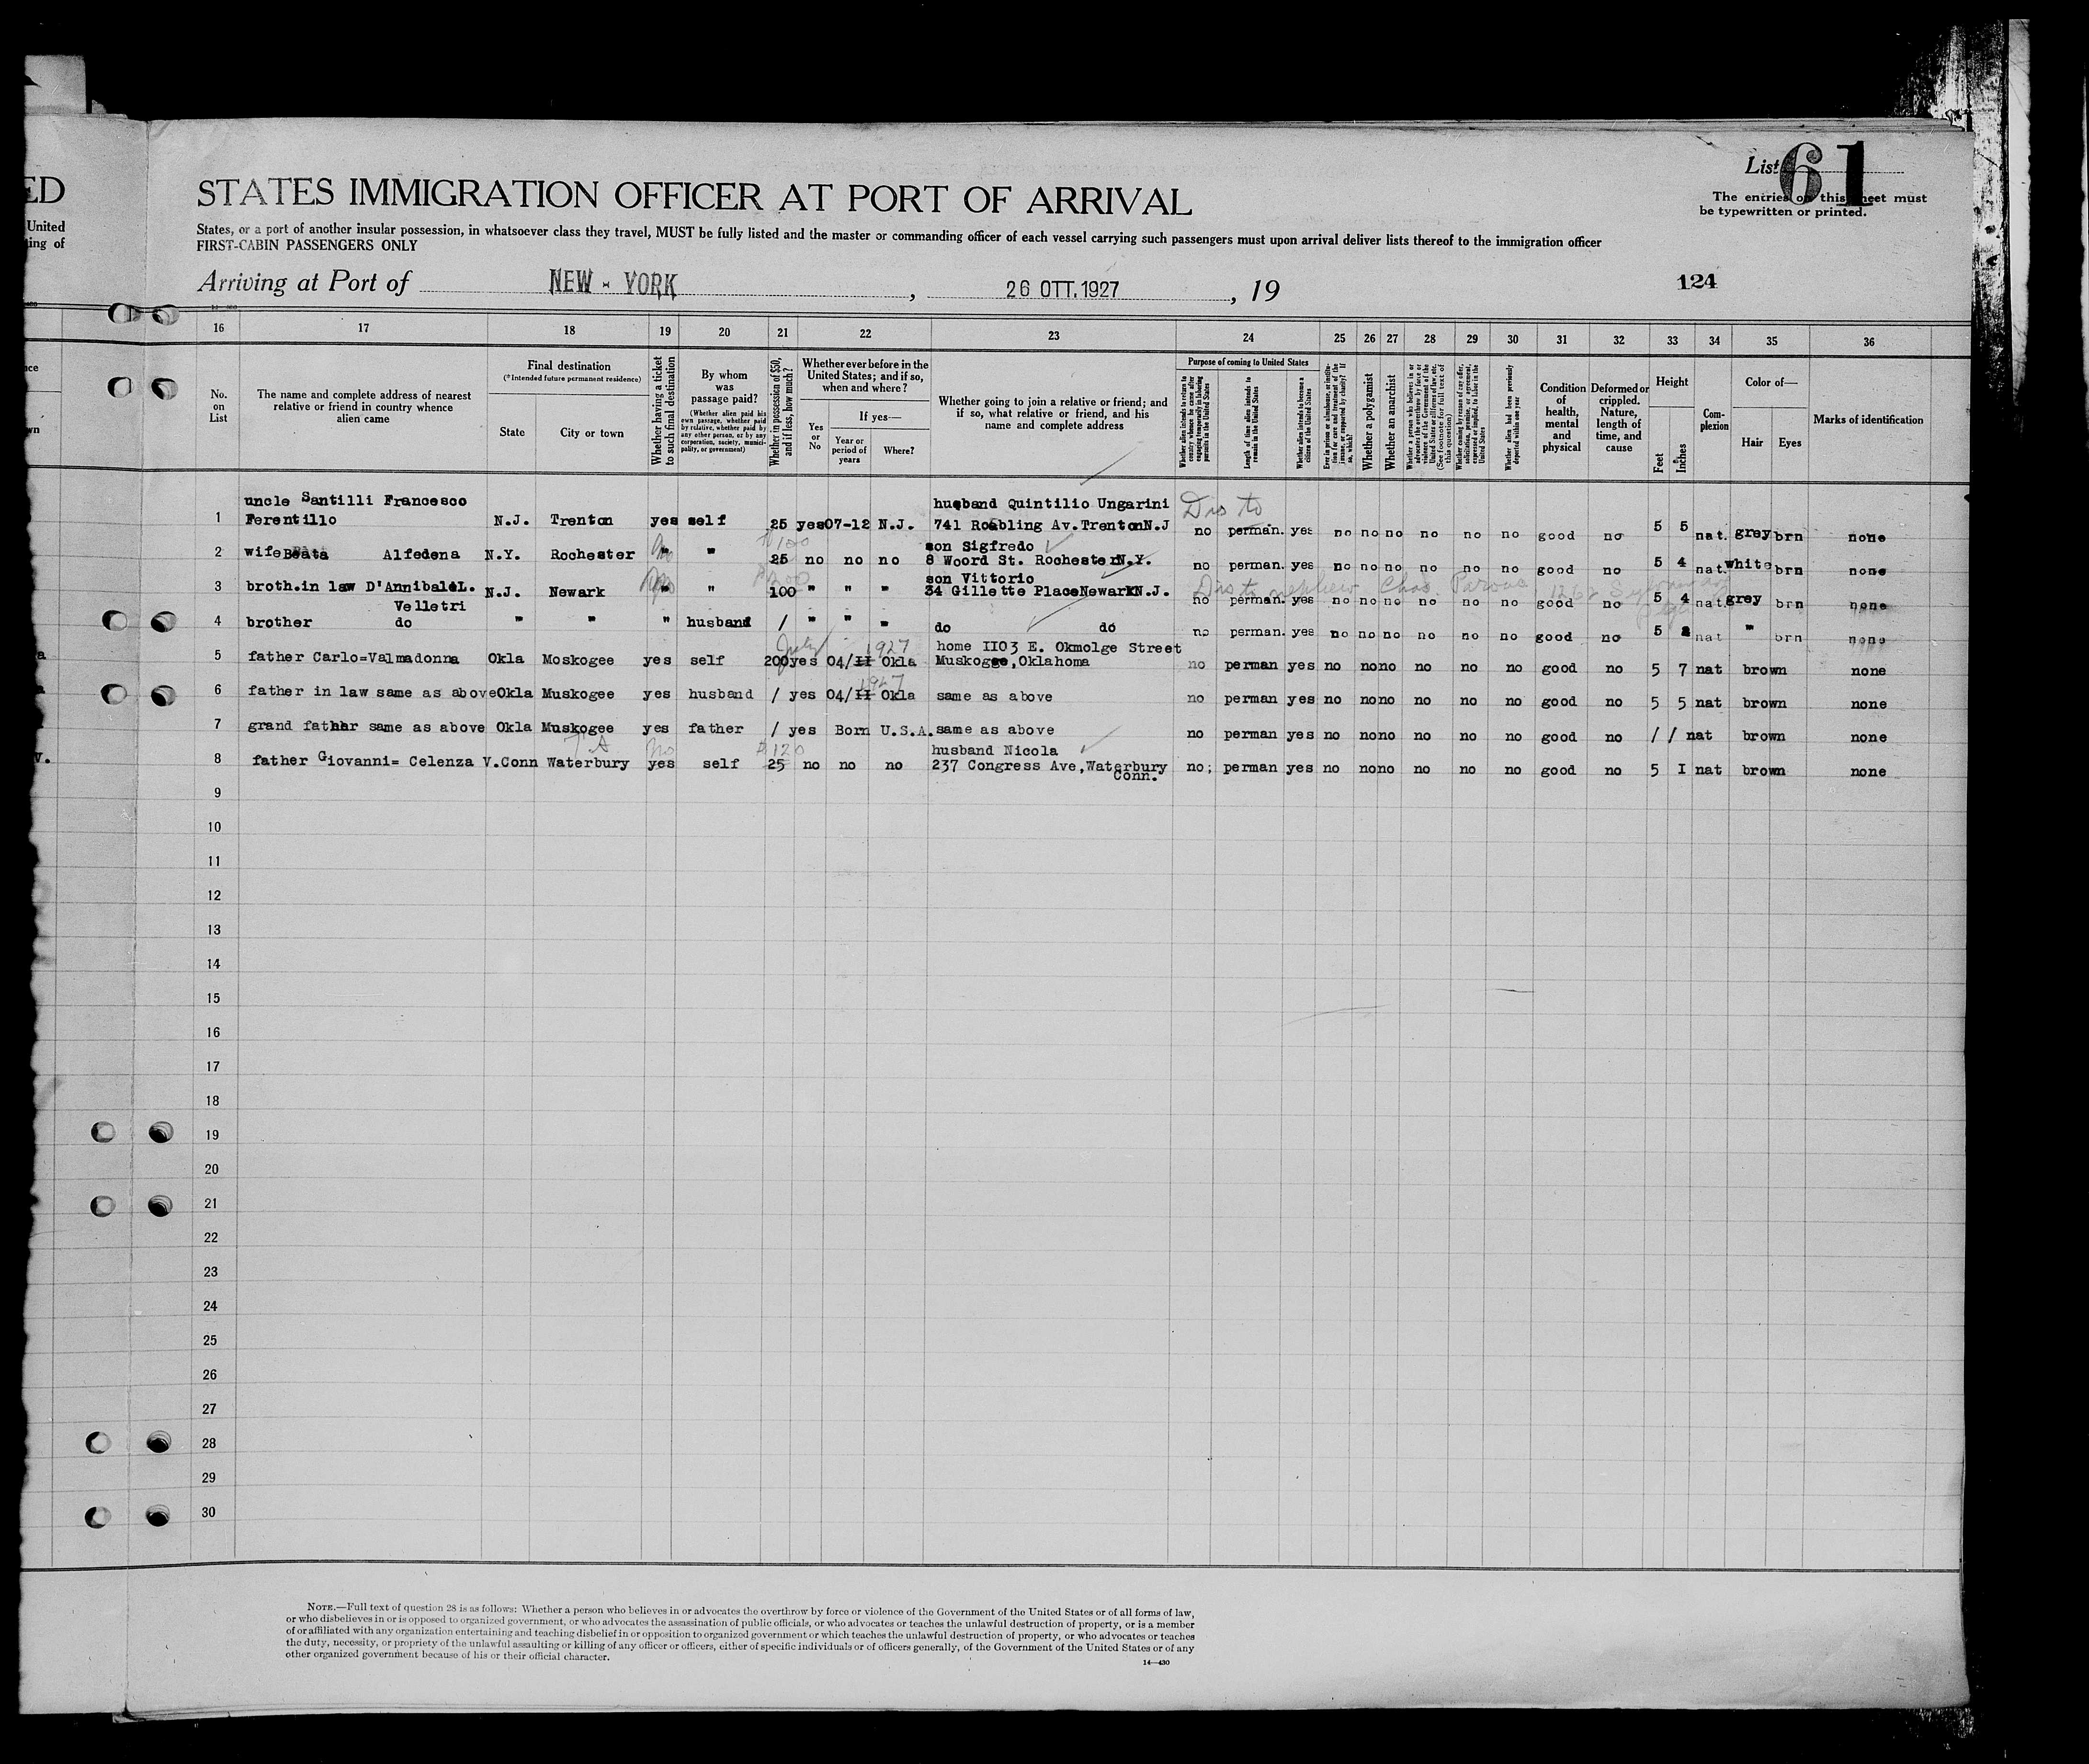 ED
United
ing of
List 61
STATES IMMIGRATION OFFICER AT PORT OF ARRIVAL
The entries on this sheet must
be typewritten or printed.
States, or a port of another insular possession, in whatsoever class they travel, MUST be fully listed and the master or commanding officer of each vessel carrying such passengers must upon arrival deliver lists thereof to the immigration officer
FIRST-CABIN PASSENGERS ONLY
Arriving at Port of NEW - YORK, 26 OTT. 1927, 19
124
16 17 18 19 20 21 22 23 24 25 26 27 28 29 30 31 32 33 34 35 36
No. on List
The name and complete address of nearest relative or friend in country whence alien came
Final destination
(*Intended future permanent residence)
State
City or town
Whether having a ticket to such final destination
By whom was passage paid?
(Whether alien paid his own passage, whether paid by relative, whether paid by any other person, or by any corporation, society, municipality, or government)
Whether in possession of $50, and if less, how much?
Whether ever before in the United States; and if so, when and where?
Yes or No
If yes—
Year or period of years
Where?
Whether going to join a relative or friend; and if so, what relative or friend, and his name and complete address
Purpose of coming to United States
Whether alien intends to return to country whence he came after engaging temporarily in laboring pursuits in the United States
Length of time alien intends to remain in the United States
Whether alien intends to become a citizen of the United States
Ever in prison or almshouse, or institution for care and treatment of the insane, or supported by charity? If so, which?
Whether a polygamist
Whether an anarchist
Whether a person who believes in or advocates the overthrow by force or violence of the Government of the United States or all forms of law, etc. (See footnote for full text of this question)
Whether coming by reason of any offer, solicitation, promise, or agreement, expressed or implied, to labor in the United States
Whether alien had been previously deported within one year
Condition of health, mental and physical
Deformed or crippled. Nature, length of time, and cause
Height
Feet
Inches
Complexion
Color of—
Hair
Eyes
Marks of identification
uncle Santilli Francesco husband Quintilio Ungarini Dis to
1 Ferentillo N.J. Trenton yes self 25 yes 07-12 N.J. 741 Roebling Av. Trenton N.J no perman. yes no no no no no no good no 5 5 nat. grey brn none
$100 son Sigfredo
2 wife Beata Alfedena N.Y. Rochester " no " 25 no no no 8 Woord St. Rochester N.Y. no perman. yes no no no no no no good no 5 4 nat. white brn none
$200 son Vittorio Dis to nephew Chas.
3 broth.in law D'Annibale L. N.J. Newark " no " 100 " " " 34 Gillette Place Newark N.J. no perman. yes no no no no no no good no 5 4 nat. grey brn none
Velletri
4 brother do " " " husband / " " " do do no perman. yes no no no no no no good no 5 2 nat " brn none
July 1927 home II03 E. Okmolge Street
5 father Carlo=Valmadonna Okla Moskogee yes self 200 yes 04/II Okla Muskogee, Oklahoma no perman yes no no no no no no good no 5 7 nat brown none
1927
6 father in law same as above Okla Muskogee yes husband / yes 04/II Okla same as above no perman yes no no no no no no good no 5 5 nat brown none
7 grand father same as above Okla Muskogee yes father / yes Born U.S.A. same as above no perman yes no no no no no no good no / / nat brown none
no $120 husband Nicola
8 father Giovanni= Celenza V. Conn Waterbury yes self 25 no no no 237 Congress Ave, Waterbury no; perman yes no no no no no no good no 5 I nat brown none
Conn.
9
10
11
12
13
14
15
16
17
18
19
20
21
22
23
24
25
26
27
28
29
30
NOTE.—Full text of question 28 is as follows: Whether a person who believes in or advocates the overthrow by force or violence of the Government of the United States or of all forms of law,
or who disbelieves in or is opposed to organized government, or who advocates the assassination of public officials, or who advocates or teaches the unlawful destruction of property, or is a member
of or affiliated with any organization entertaining and teaching disbelief in or opposition to organized government or which teaches the unlawful destruction of property, or who advocates or teaches
the duty, necessity, or propriety of the unlawful assaulting or killing of any officer or officers, either of specific individuals or of officers generally, of the Government of the United States or of any
other organized government because of his or their official character.
14—430